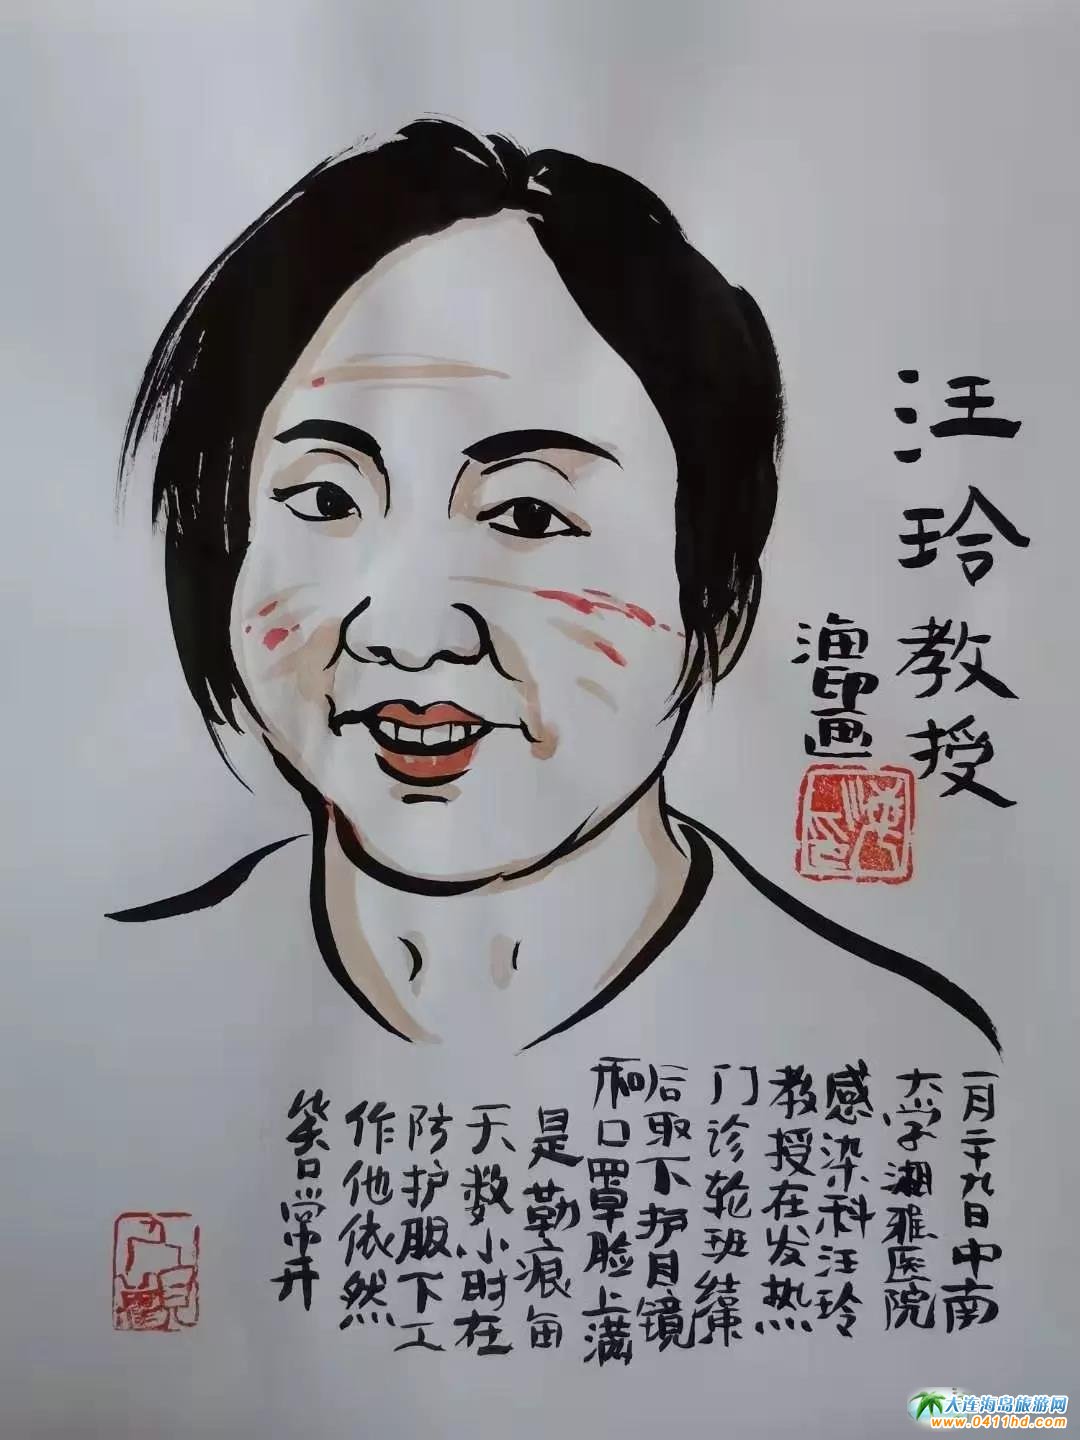 汪玲教授
海印画
一月二十九日中南
大学湘雅医院
感染科汪玲
教授在发热
门诊轮班结束
后取下护目镜
和口罩脸上满
是勒痕每
天数小时在
防护服下工
作他依然
笑口常开
大连海岛旅游网
www.0411hd.com